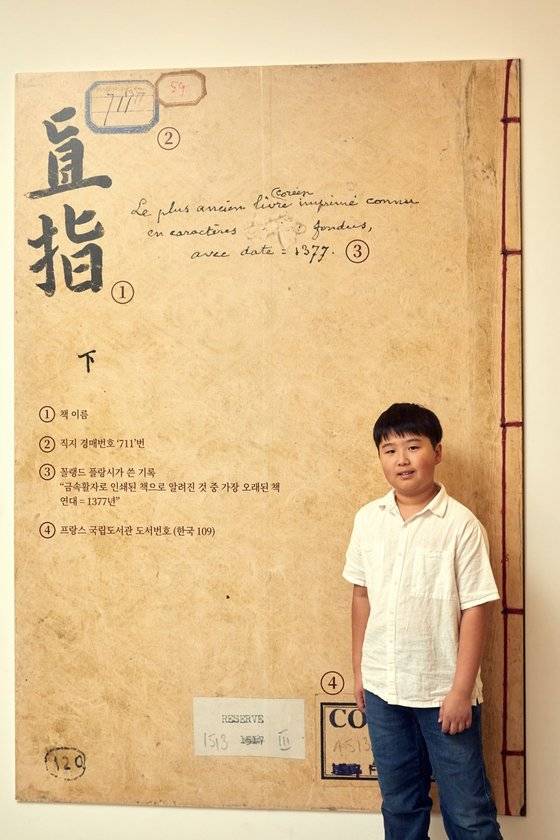 7117
59
②
直
指
①
coréen
Le plus ancien livre imprimé connu
en caractères fondus,
avec date = 1377. ③
下
① 책 이름
② 직지 경매번호 ‘711’번
③ 꼴랭드 플랑시가 쓴 기록
“금속활자로 인쇄된 책으로 알려진 것 중 가장 오래된 책
연대 = 1377년”
④ 프랑스 국립도서관 도서번호 (한국 109)
④
RESERVE
1513 III
CO
120